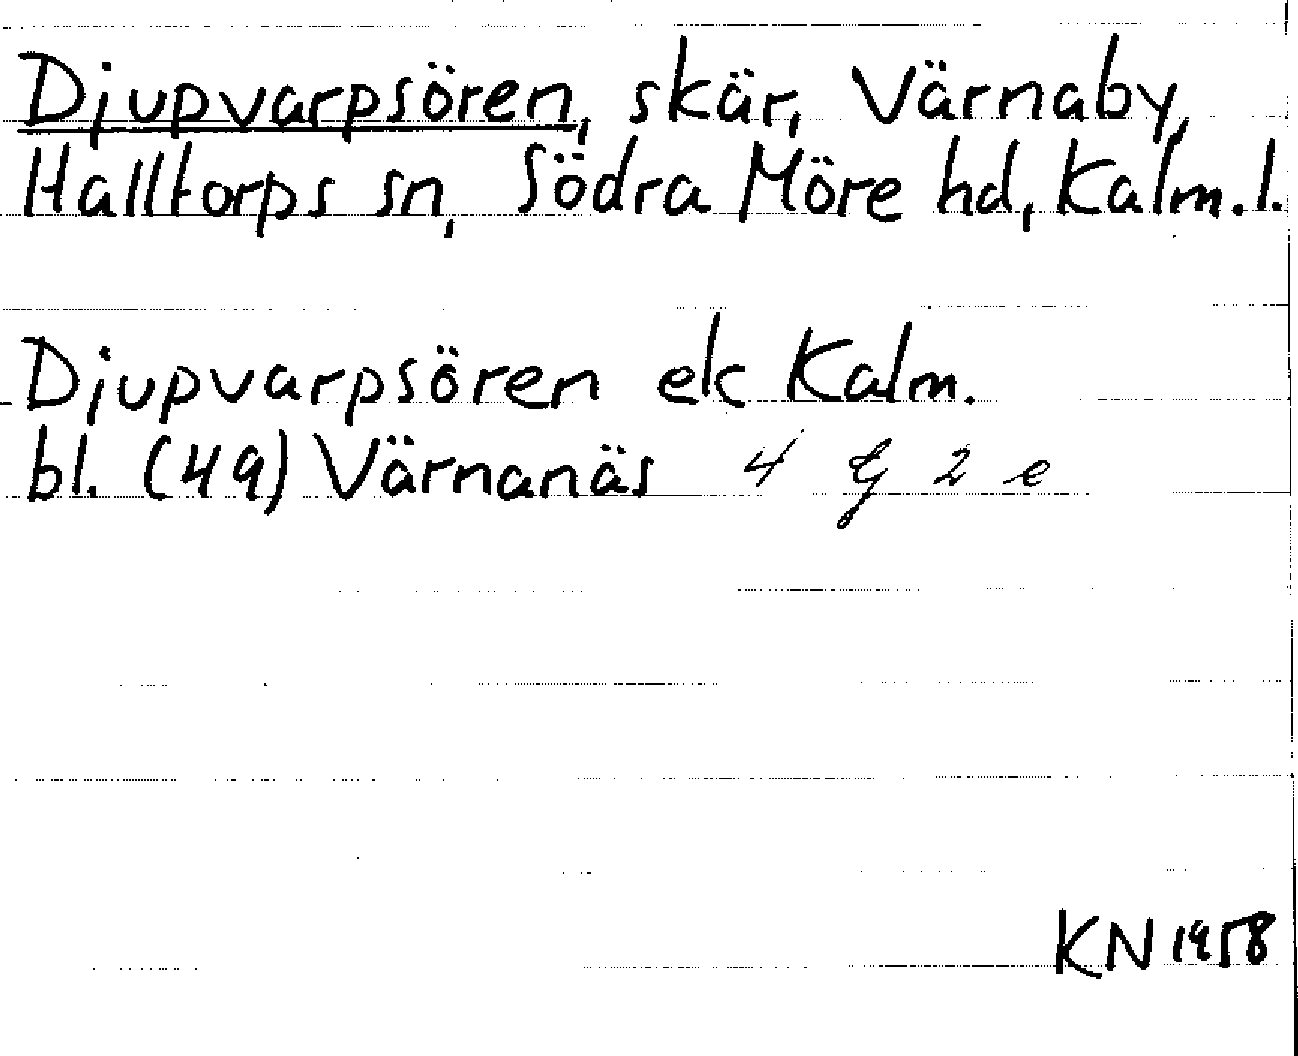 Djupvarpsören, skär, Värnaby,
Halltorps sn, Södra Möre hd, Kalm. l.
Djupvarpsören ek Kalm.
bl. (49) Värnanäs 4 G 2 e
KN 1958